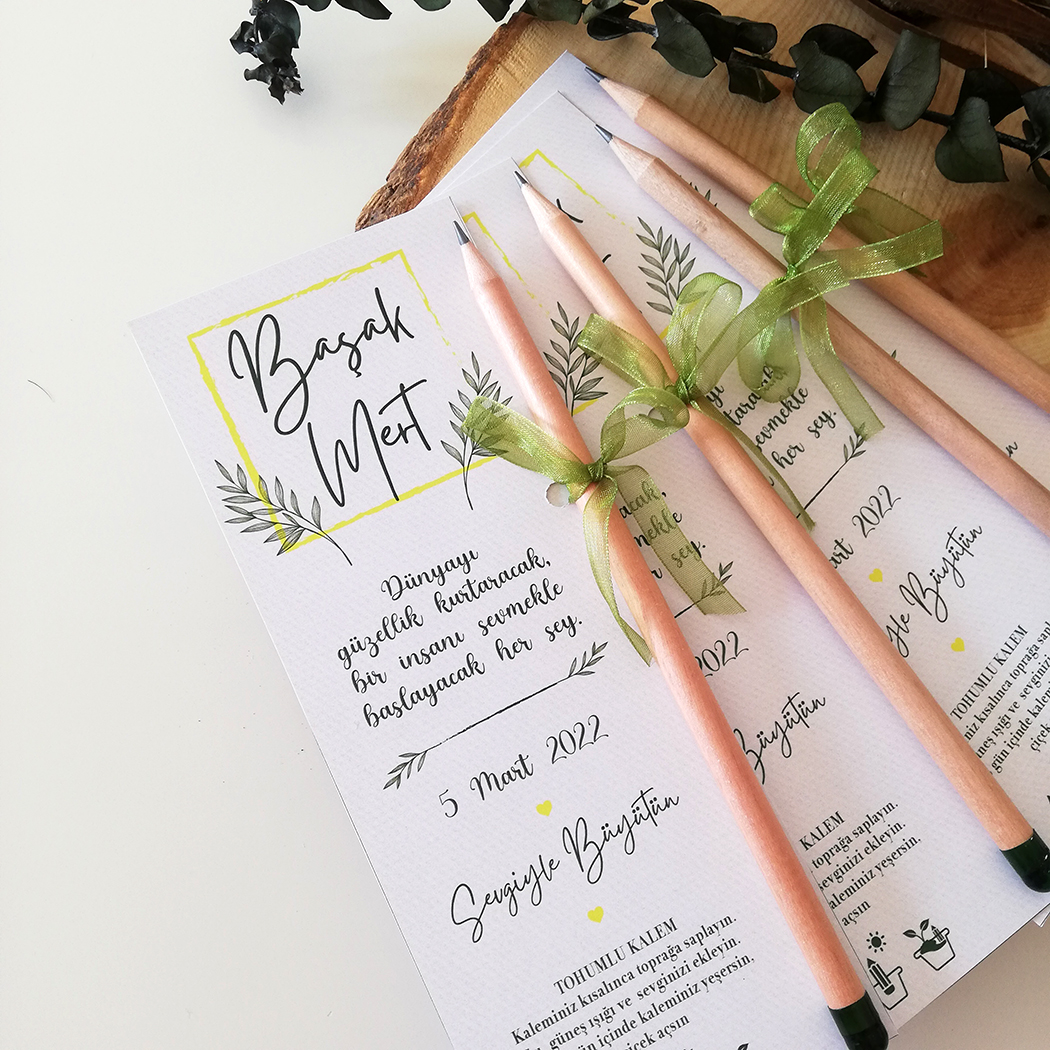 Başak
Mert
Dünyayı
güzellik kurtaracak,
bir insanı sevmekle
başlayacak her şey.
5 Mart 2022
Sevgiyle Büyütün
TOHUMLU KALEM
Kaleminiz kısalınca toprağa saplayın.
güneş ışığı ve sevginizi ekleyin.
gün içinde kaleminiz yeşersin,
çiçek açsın
k
acak,
mekle
her şey.
2022
Büyütün
KALEM
toprağa saplayın.
sevginizi ekleyin.
kaleminiz yeşersin,
açsın
yı
rtaracak,
sevmekle
her şey.
art 2022
yle Büyütün
TOHUMLU KALEM
niz kısalınca toprağa sapl
güneş ışığı ve sevginiz
gün içinde kalem
çiçek